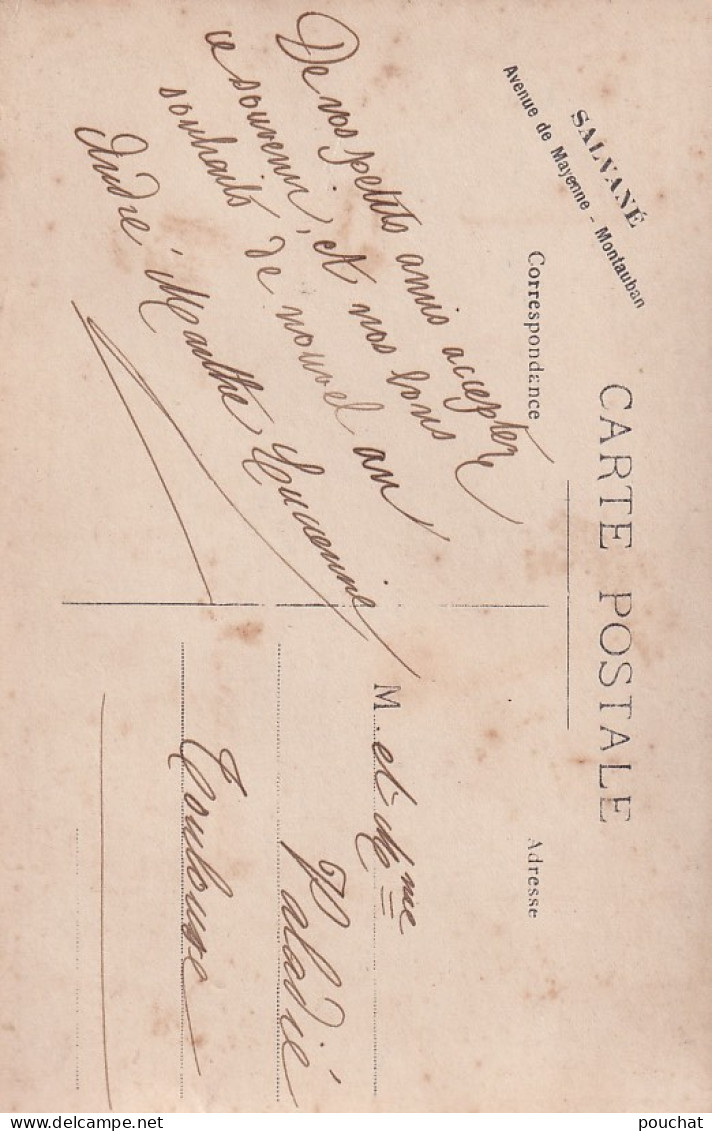 CARTE POSTALE
SALVANÉ
Avenue de Mayenne - Montauban
Correspondance
Adresse
De vos petits amis acceptez
ce souvenir, et nos bons
souhaits de nouvel an
André Marthe Lucienne
M. et Mme
Paladié
Toulouse
pouchat